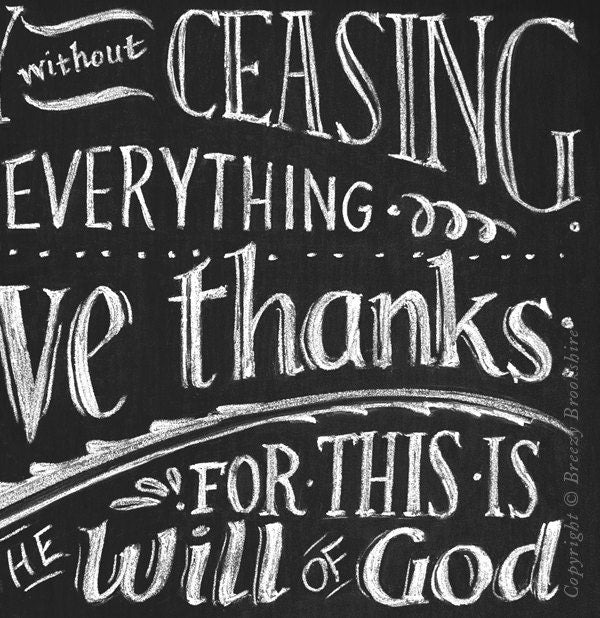 Y without CEASING.
EVERYTHING
ve thanks.
FOR · THIS · IS
THE Will OF God
Copyright © Breezy Brookshire